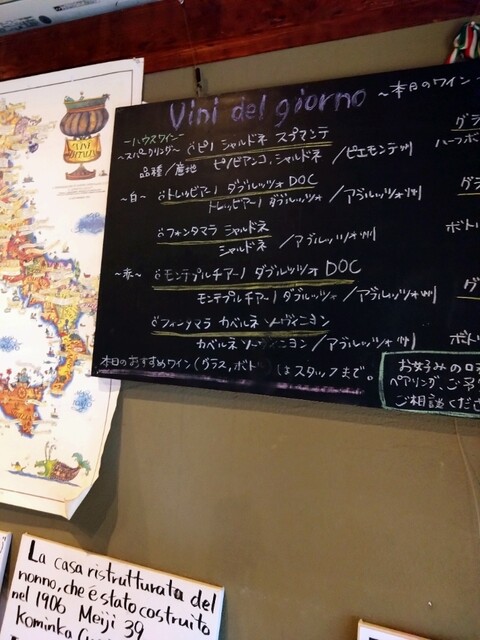 Vini del giorno ~本日のワイン~
ーハウスワインー
グラ
~スパークリング~ ♂ピノ シャルドネ スプマンテ
ハーフボ
品種/産地 ピノビアンコ、シャルドネ /ピエモンテ州
~白~ ♂トレッビアーノ ダブルッツォ DOC
グラ
トレッビアーノ ダブルッツォ /アブルッツォ州
♂フォンタマラ シャルドネ
ボト
シャルドネ /アブルッツォ州
~赤~ ♂モンテプルチアーノ ダブルッツォ DOC
グ
モンテプルチアーノ ダブルッツォ /アブルッツォ州
♂フォンタマラ カベルネ ソーヴィニヨン
ボト
カベルネ ソーヴィニヨン /アブルッツォ州
本日のおすすめワイン(グラス,ボト はスタッフまで。
お好みの
ペアリング、ご予
ご相談くださ
VINI
D'ITALIA
La casa ristrutturata del
nonno, che è stato costruito
nel 1906 Meiji 39
Kominka